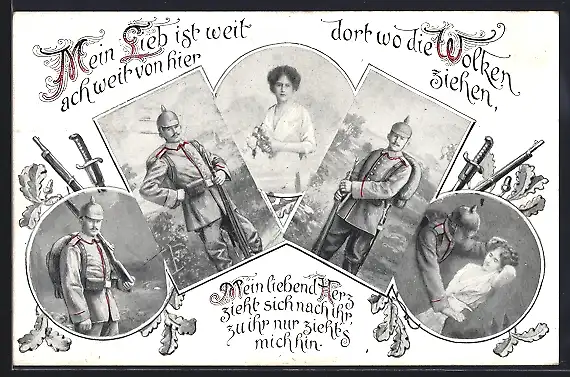 Mein Lieb ist weit
ach weit von hier
dort wo die Wolken
ziehen,
Mein liebend Herz
zieht sich nach ihr
zu ihr nur zieht's
mich hin.